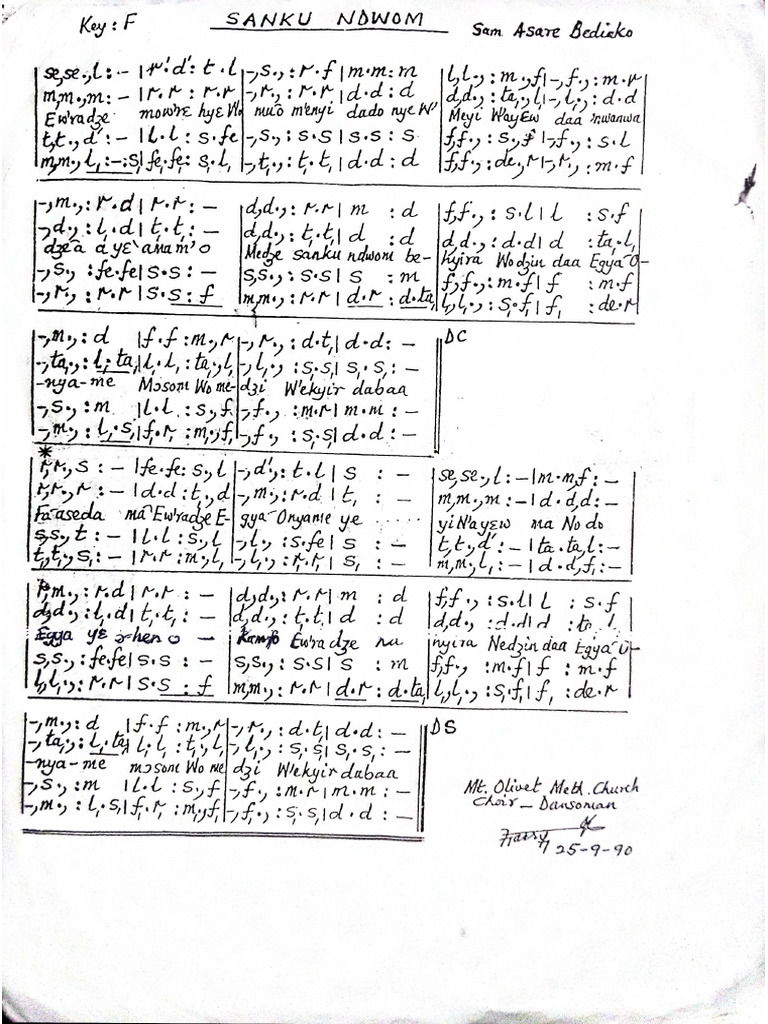 Key: F    SANKU NDWOM    Sam Asare Bediako
|se,se.,l : - | r'.d' : t.l |-,s., : r.f | m.m : m | l,l., : m.,f |-,f., : m.r
|m,m.,m : - | r.r : r.r |-,r., : r.r | d.d : d | d,d., : ta,.,l, |-,l,., : d.d
Ew'radze mowɔrɛ hyɛ Wo muo m'enyi dado nye W' Meyi W'ayɛw daa nwanwa
|t,t.,d' : - | l.l : s.fe |-,s., : s.s | s.s : s | f,f., : s.,f |-,f., : s.l
|m,m., l, : -.,s, | fe,.fe, : s,.l, |-,t,., : t,.t, | d.d : d | f,f., : de.,r |-,r., : m.f
|-,m., : r.d | r.r : - | d,d., : r.r | m : d | f,f., : s.l | l : s.f
|-,d., : l,.d | t,.t, : - | d,d., : t,.t, | d : d | d,d., : d.d | d : ta,.l,
dzea a yɛ anam'o Medze sanku ndwom be- hyira Wo dzin daa Egya O-
|-,s., : fe.fe | s.s : - | s,s., : s.s | s : m | f,f., : m.f | f : m.f
|-,r., : r.r | s.s : f | m,m., : r.r | d.r : d.ta, | l,l,., : s,.f, | f, : de.r
|-,m., : d | f.f : m.,r |-,r., : d.t, | d.d : - || DC
|-,ta,., : l,.ta, | l,.l, : ta,.,l, |-,l,., : s,.s, | s,.s, : -
-nya-me Mɔsom Wo me- dzi W'ekyir dabaa
|-,s., : m | l.l : s.,f |-,f., : m.r | m.m : -
|-,m., : l,.s, | f,.r, : m,.,f, |-,f,., : s,.s, | d.d : -
*
|r,r.,s : - | fe.fe : s.,l |-,d'., : t.l | s : - | se,se.,l : - | m.m,f : -
|r,r.,r : - | d.d : t,.,d |-,m., : r.d | t, : - | m,m.,m : - | d.d,d : -
Fa aseda ma Ew'radze E- gya Onyame ye ...... yi N'ayɛw ma No do
|s,s.,t : - | l.l : s.,l |-,l., : s.fe | s : - | t,t.,d' : - | ta.ta,l : -
|t,t,.,s, : - | r.r : m.,l, |-,l,., : r.r | s, : - | m,m.,l, : - | d.d,f, : -
m., : r.d | r.r : - | d,d., : r.r | m : d | f,f., : s.l | l : s.f
d., : l,.d | t,.t, : - | d,d., : t,.t, | d : d | d,d., : d.d | d : ta,.l,
Egya yɛ ɔhen o - Kamfo Ew'radze na nyira Nedzin daa Egya O-
|s,s., : fe.fe | s.s : - | s,s., : s.s | s : m | f,f., : m.f | f : m.f
|l,l,., : r.r | s.s : f | m,m., : r.r | d.r : d.ta, | l,l,., : s,.f, | f, : de.r
|-,m., : d | f.f : m.,r |-,r., : d.t, | d.d : - || DS
|-,ta,., : l,.ta, | l,.l, : t,.,l, |-,l,., : s,.s, | s,.s, : -
-nya-me mɔsom Wo me dzi W'ekyir dabaa
|-,s., : m | l.l : s.,f |-,f., : m.r | m.m : -
|-,m., : l,.s, | f,.r, : m,.,f, |-,f,., : s,.s, | d.d : -
Mt. Olivet Meth. Church
Choir - Dansoman
25-9-90